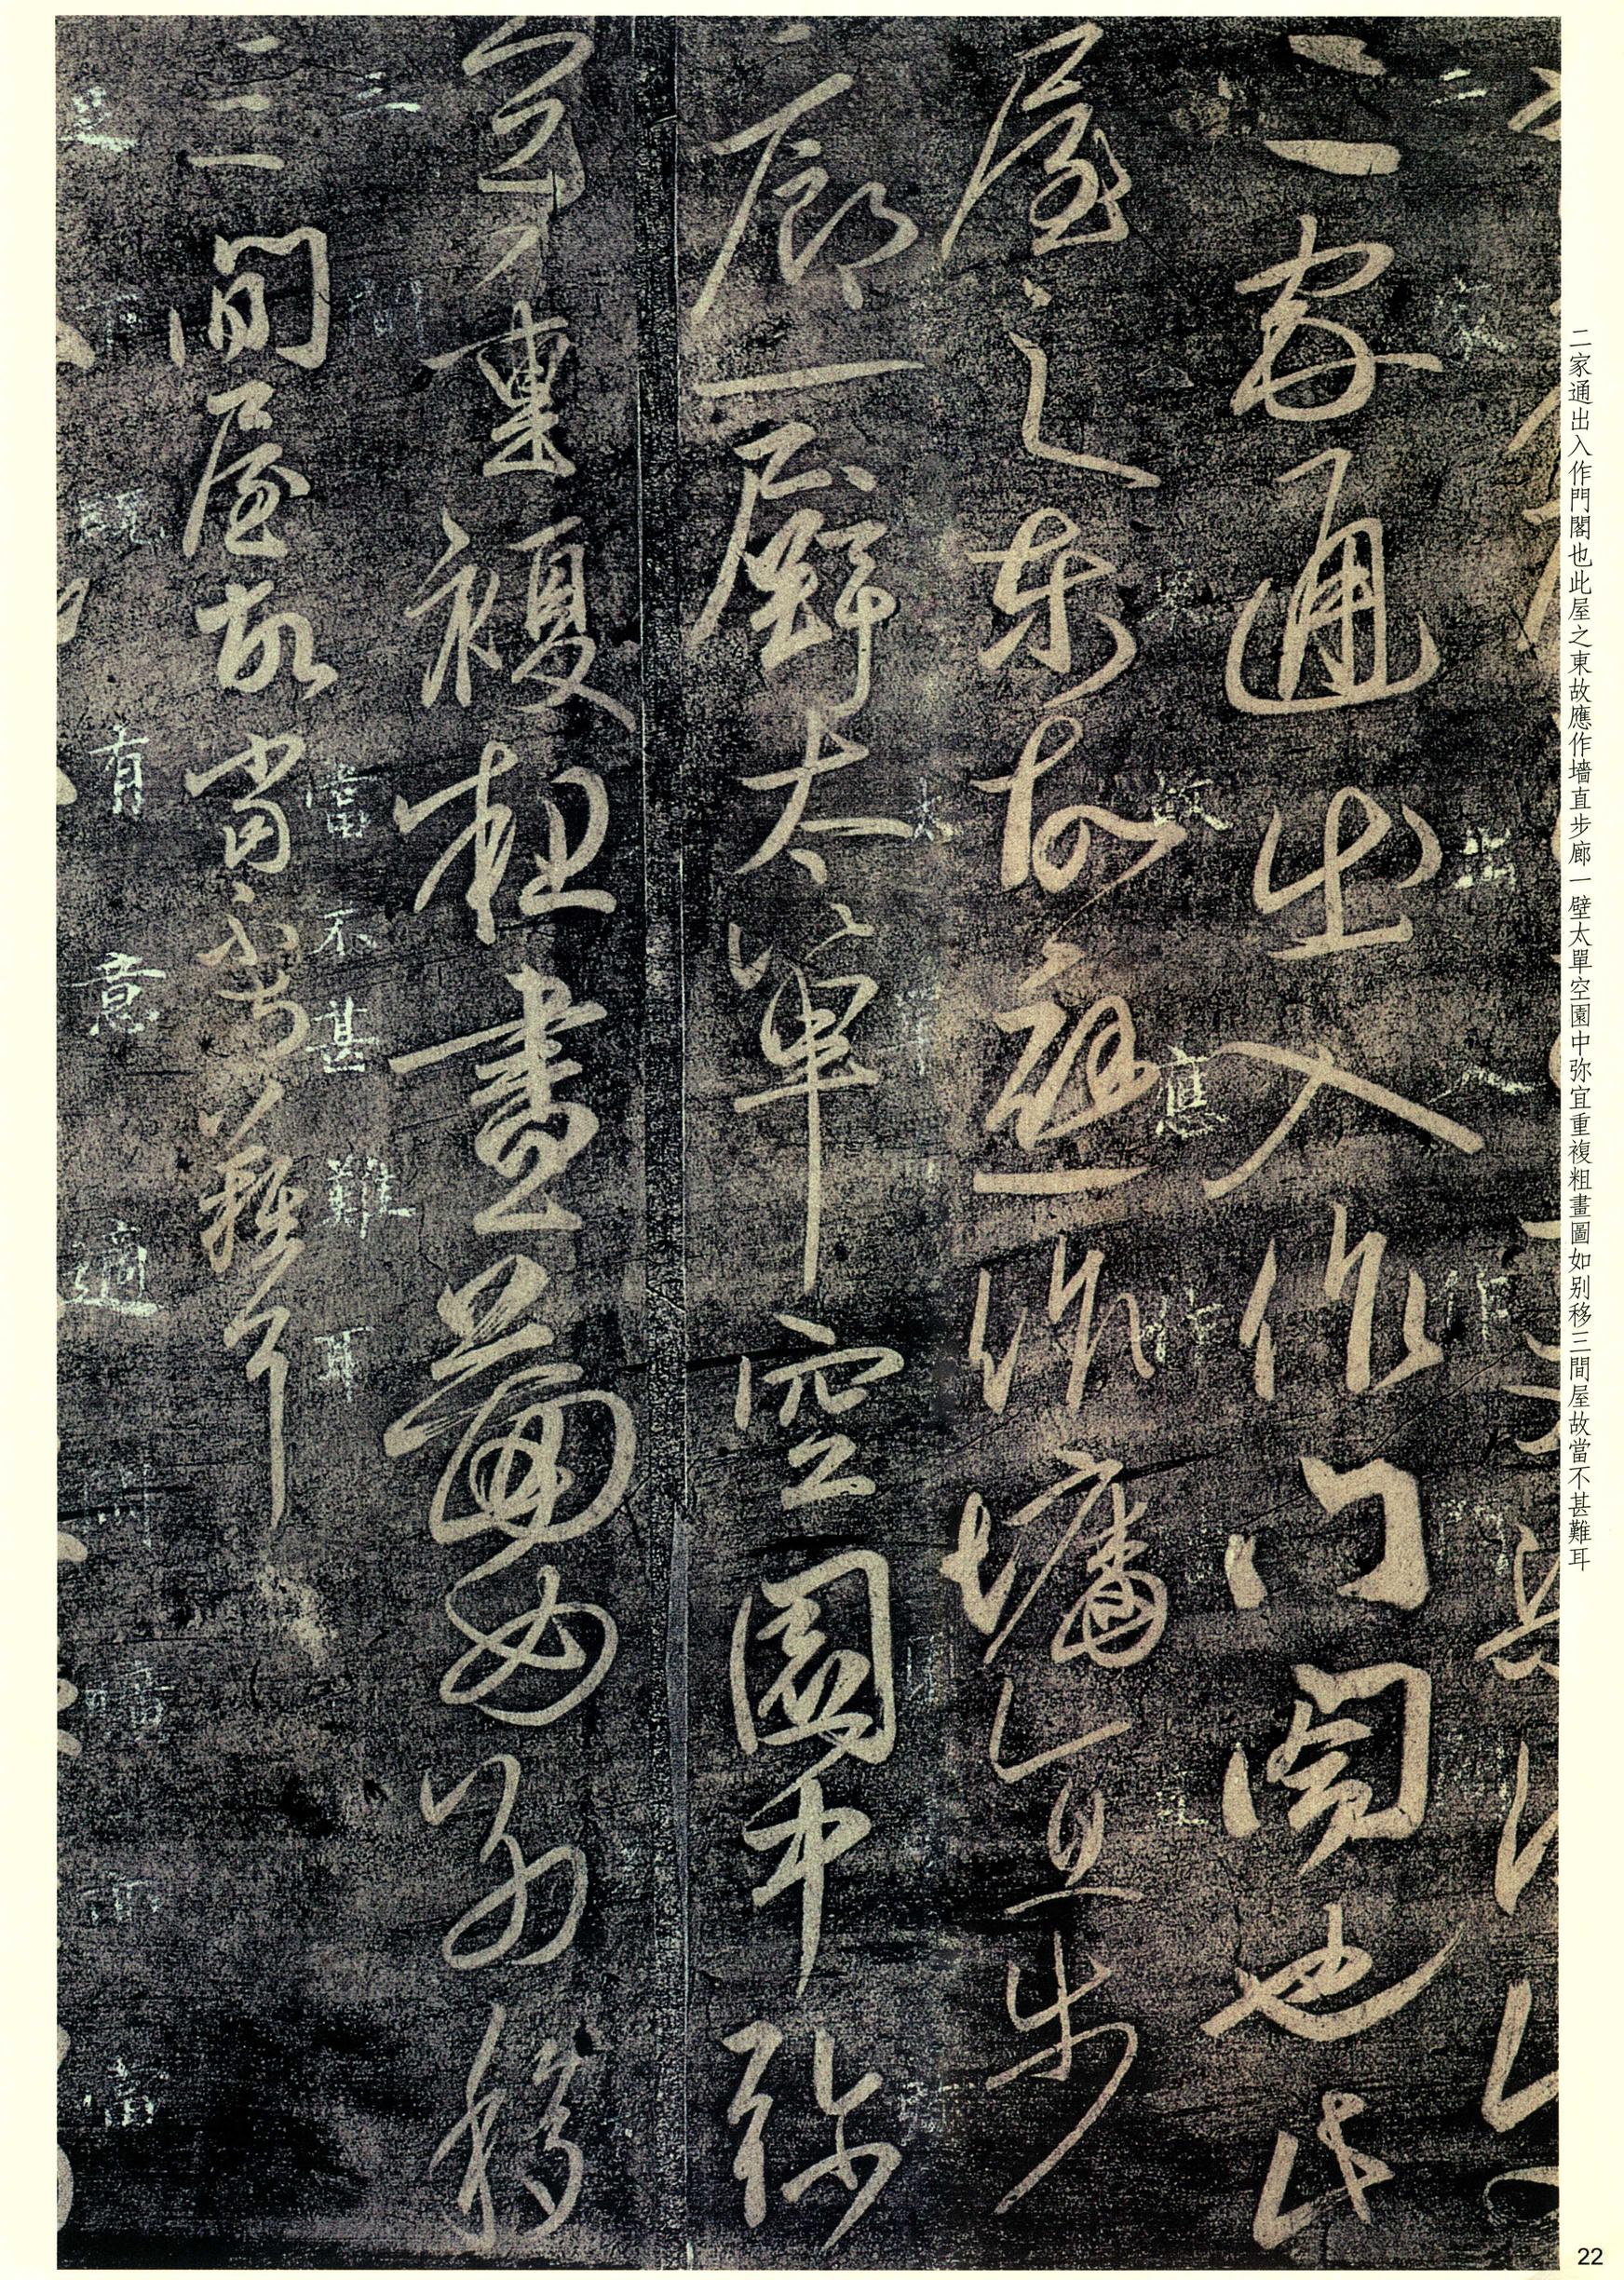 二家通出入作門閣也此屋之東故應作墻直步廊一壁太單空園中弥宜重複粗畫圖如别移三間屋故當不甚難耳
二家通出入作門閣也此
屋之東故應作墻直步
廊一壁太單空園中弥
宜重複粗畫圖如别移
三間屋故當不甚難耳
出
入
作
故
應
作
二
間
當
不
甚
難
耳
足
有
意
適
22